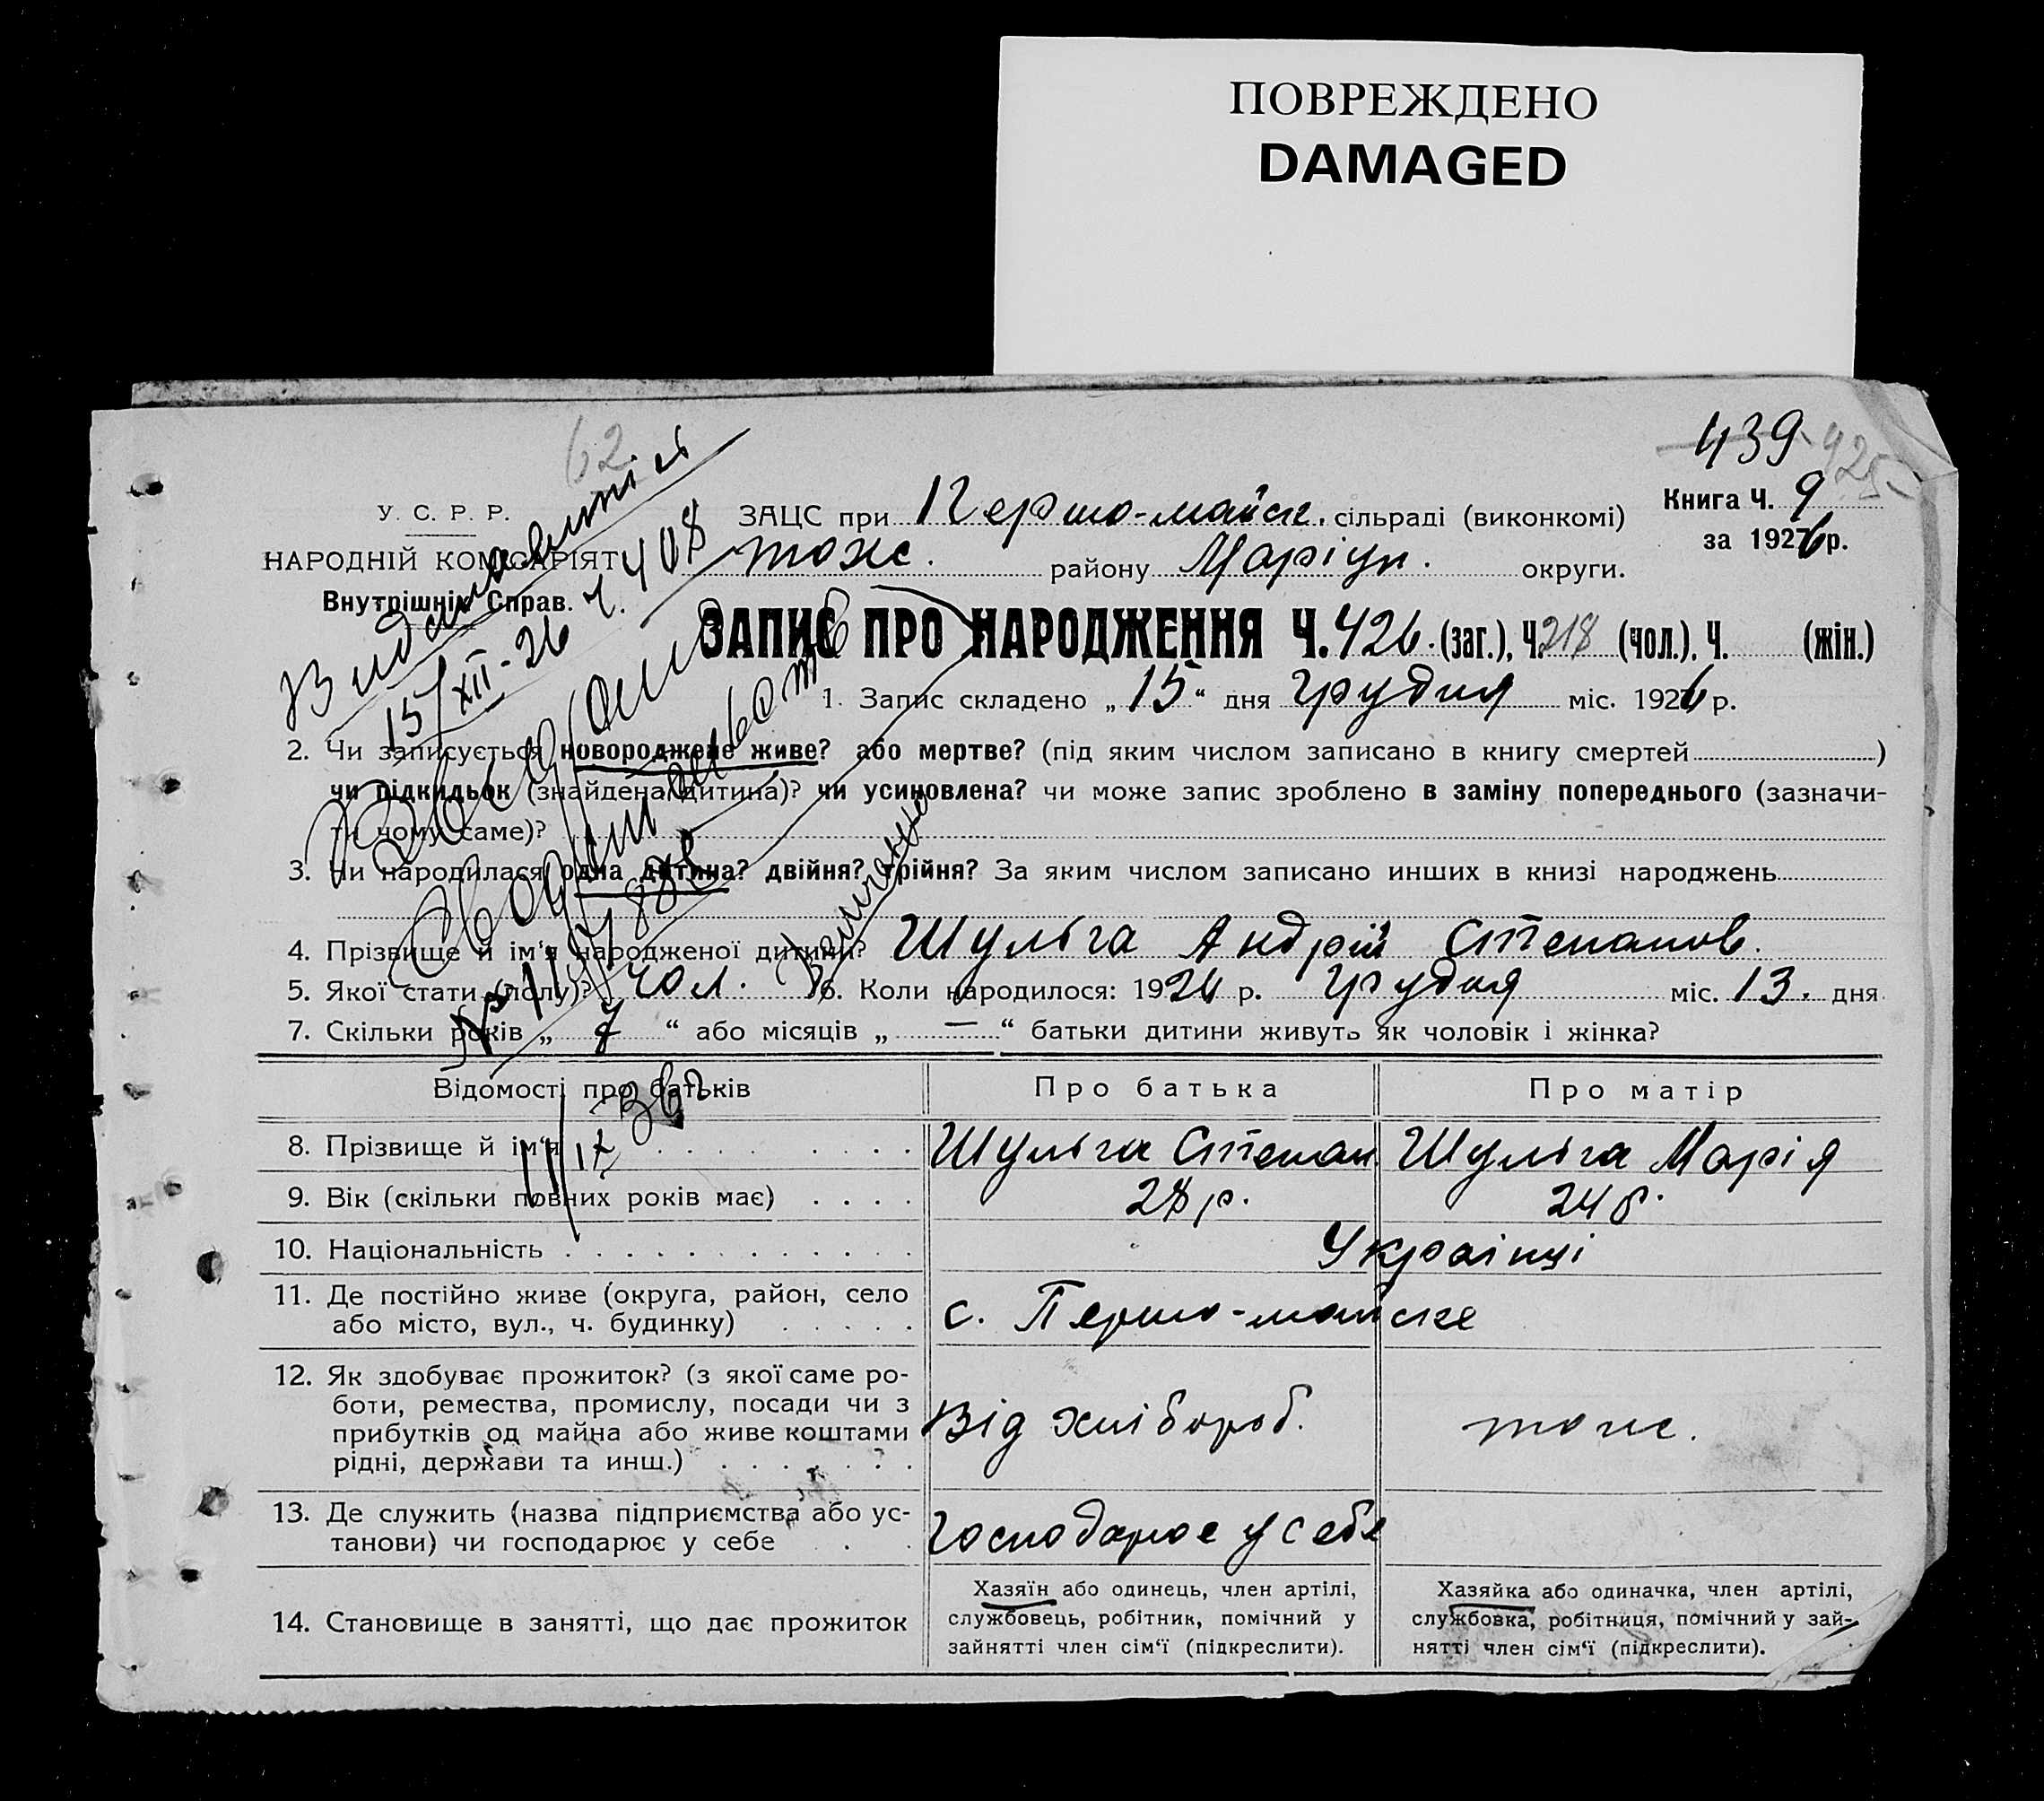 ПОВРЕЖДЕНО
DAMAGED
439 425
62
У. С. Р. Р.
НАРОДНІЙ КОМІСАРІЯТ
Внутрішніх Справ.
ЗАЦС при Першо-майськ. сільраді (виконкомі)
Книга Ч. 9
за 1926 р.
тож. району Маріуп. округи.
ЗАПИС ПРО НАРОДЖЕННЯ Ч. 426. (заг.), Ч. 218 (чол.), Ч. (жін.)
15/XII-26 ч. 408
1. Запис складено „ 15 “ дня Грудня міс. 1926 р.
2. Чи записується новороджене живе? або мертве? (під яким числом записано в книгу смертей )
чи підкидьок (знайдена дитина)? чи усиновлена? чи може запис зроблено в заміну попереднього (зазначи-
ти чому саме)?
3. Чи народилася одна дитина? двійня? трійня? За яким числом записано инших в книзі народжень
4. Прізвище й ім‘я народженої дитини? Шульга Андрій Степанов.
5. Якої стати (полу)? чол. 6. Коли народилося: 1926 р. Грудня міс. 13. дня
7. Скільки років „ 7 “ або місяців „ — “ батьки дитини живуть як чоловік і жінка?
Відомості про батьків Про батька Про матір
8. Прізвище й ім‘я Шульга Степан. Шульга Марія
9. Вік (скільки повних років має) 28 р. 24 р.
10. Національність Українці
11. Де постійно живе (округа, район, село
або місто, вул., ч. будинку) с. Першо-майське
12. Як здобуває прожиток? (з якої саме ро-
боти, ремества, промислу, посади чи з
прибутків од майна або живе коштами
рідні, держави та инш.) Від хлібороб. тож.
13. Де служить (назва підприємства або ус-
танови) чи господарює у себе Господарює у себе
14. Становище в занятті, що дає прожиток
Хазяїн або одинець, член артілі,
службовець, робітник, помічний у
зайнятті член сім‘ї (підкреслити).
Хазяйка або одиначка, член артілі,
службовка, робітниця, помічний у зай-
нятті член сім‘ї (підкреслити).